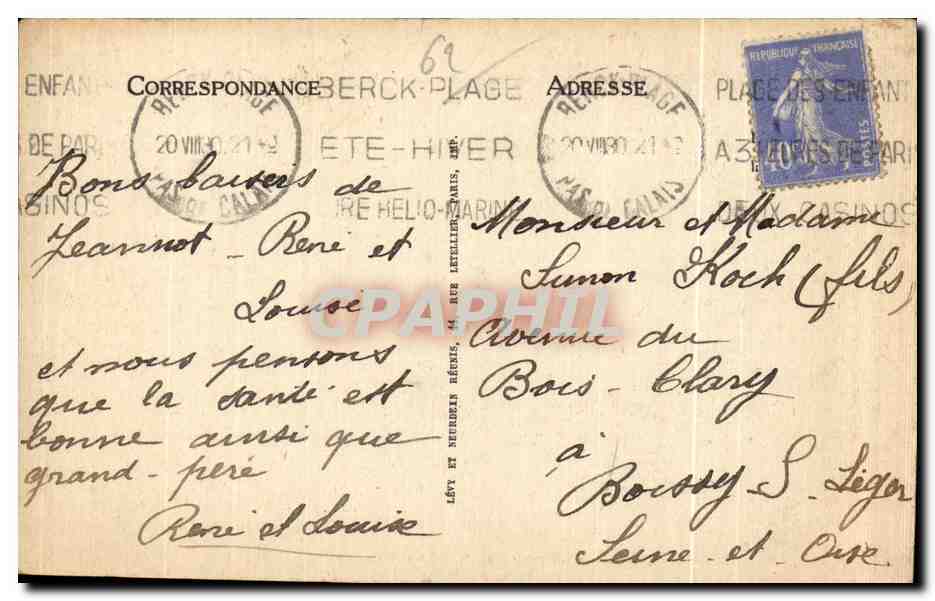 62
CORRESPONDANCE
ADRESSE
BERCK-PLAGE
ETE-HIVER
URE HELIO-MARIN
BERCK-PLAGE
20 VIII 30. 21
PAS DE CALAIS
BERCK-PLAGE
20 VIII 30. 21
PAS DE CALAIS
ENFAN
S DE PAR
CASINOS
PLAGE DES ENFANT
A 3 HEURES DE PARIS
DEUX CASINOS
REPUBLIQUE FRANÇAISE
40c
POSTES
Bons baisers de
Jeannot - René et
Louise
et nous pensons
que la santé est
bonne ainsi que
grand-père
René et Louise
LÉVY ET NEURDEIN RÉUNIS, 44, RUE LETELLIER, PARIS, IMP.
Monsieur et Madame
Simon Koch (fils)
Avenue du
Bois-Clary
à
Boissy S-Léger
Seine-et-Oise
CPAPHIL